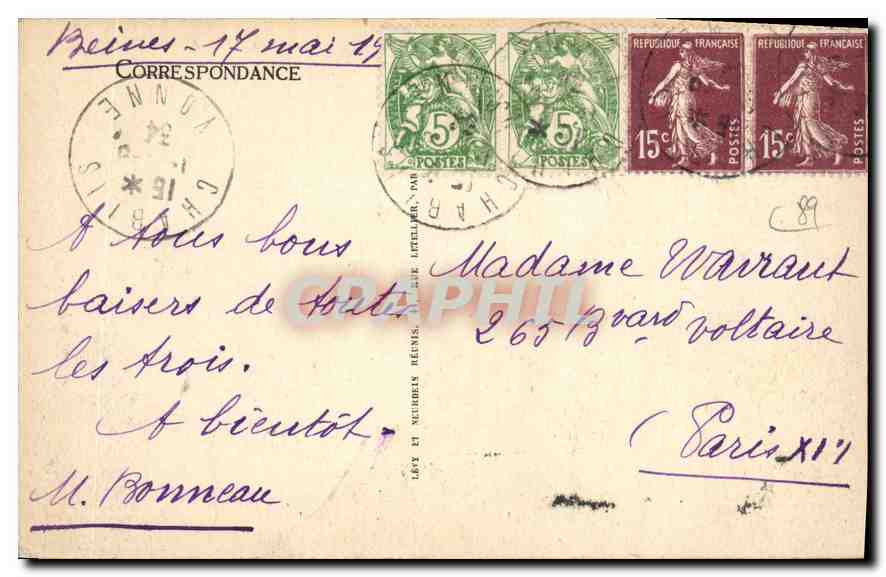 Beines - 17 mai 19
CORRESPONDANCE
5c
POSTES
5c
POSTES
REPUBLIQUE FRANÇAISE
15c
POSTES
REPUBLIQUE FRANÇAISE
15c
POSTES
CHABLIS
YONNE
15
34
CHABLIS
c.89
A tous bons
baisers de toutes
les trois.
A bientôt -
M. Bonneau
LÉVY ET NEURDEIN RÉUNIS, RUE LETELLIER, PAR
Madame Warrant
265 Bvard Voltaire
Paris XI
CPAPHIL